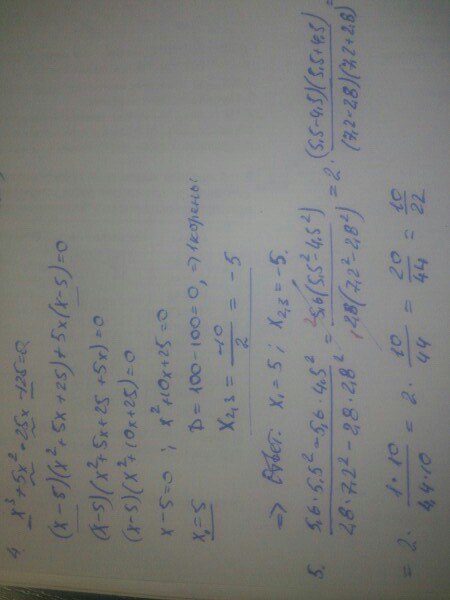 4. x³+5x²-25x-125=0
(x-5)(x²+5x+25)+5x(x-5)=0
(x-5)(x²+5x+25+5x)=0
(x-5)(x²+10x+25)=0
x-5=0 ; x²+10x+25=0
x₁=5 D=100-100=0, => 1 корень
x₂,₃ = -10/2 = -5
=> Ответ: x₁=5; x₂,₃=-5.
5. (5,6·5,5²-5,6·4,5²)/(2,8·7,2²-2,8·2,8²) = ²5,6(5,5²-4,5²)/¹2,8(7,2²-2,8²) = 2·(5,5-4,5)(5,5+4,5)/(7,2-2,8)(7,2+2,8) =
= 2· 1·10/4,4·10 = 2· 10/44 = 20/44 = 10/22